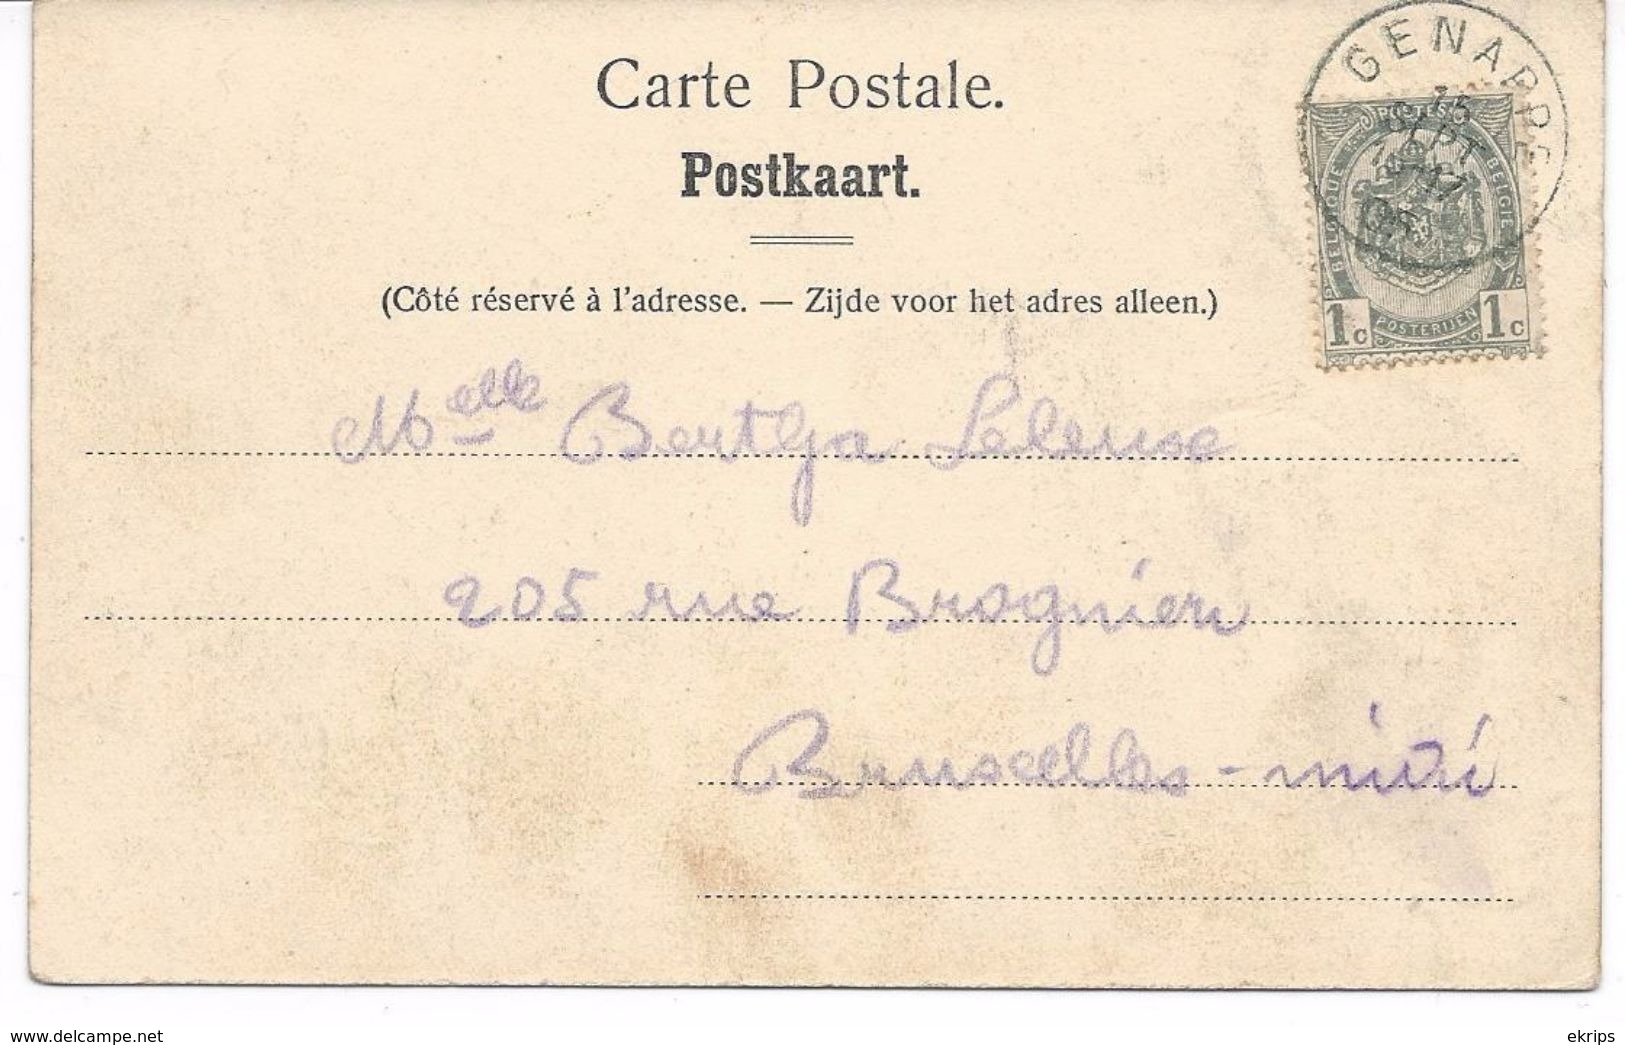 Carte Postale.
Postkaart.
(Côté réservé à l'adresse. — Zijde voor het adres alleen.)
GENAPPE
15
SEPT
POSTES
BELGIQUE
BELGIE
POSTERIJEN
1c
1c
Melle Bertha
205 rue Brogniez
Bruxelles-midi
www.delcampe.net
ekrips